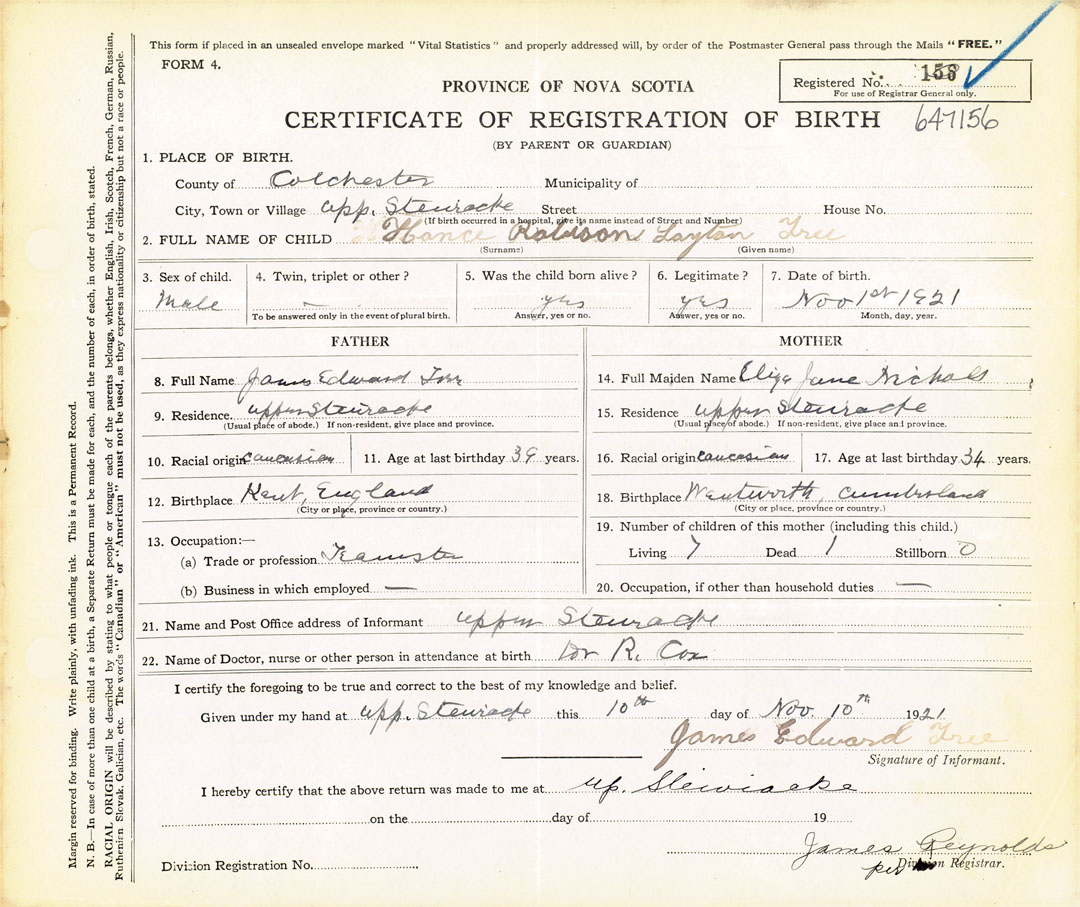 This form if placed in an unsealed envelope marked "Vital Statistics" and properly addressed will, by order of the Postmaster General pass through the Mails "FREE."
FORM 4.
Registered No. 156
For use of Registrar General only.
PROVINCE OF NOVA SCOTIA
CERTIFICATE OF REGISTRATION OF BIRTH 647156
(BY PARENT OR GUARDIAN)
1. PLACE OF BIRTH.
County of Colchester Municipality of
City, Town or Village Upp. Stewiacke Street House No.
(If birth occurred in a hospital, give its name instead of Street and Number)
2. FULL NAME OF CHILD Hance Robison Layton Tree
(Surname) (Given name)
3. Sex of child. 4. Twin, triplet or other? 5. Was the child born alive? 6. Legitimate? 7. Date of birth.
Male — yes yes Nov 1st 1921
To be answered only in the event of plural birth. Answer, yes or no. Answer, yes or no. Month, day, year.
FATHER
8. Full Name James Edward Tree
9. Residence upper Stewiacke
(Usual place of abode.) If non-resident, give place and province.
10. Racial origin Caucasian 11. Age at last birthday 39 years.
12. Birthplace Kent, England
(City or place, province or country.)
13. Occupation:—
(a) Trade or profession Teamster
(b) Business in which employed —
MOTHER
14. Full Maiden Name Eliza Jane Nichols
15. Residence upper Stewiacke
(Usual place of abode.) If non-resident, give place and province.
16. Racial origin caucasian 17. Age at last birthday 34 years.
18. Birthplace Wentworth, Cumberland
(City or place, province or country.)
19. Number of children of this mother (including this child.)
Living 7 Dead 1 Stillborn 0
20. Occupation, if other than household duties —
21. Name and Post Office address of Informant upper Stewiacke
22. Name of Doctor, nurse or other person in attendance at birth Dr R. Cox
I certify the foregoing to be true and correct to the best of my knowledge and belief.
Given under my hand at upp. Stewiacke this 10th day of Nov 10th 1921
James Edward Tree
Signature of Informant.
I hereby certify that the above return was made to me at Up. Stewiacke
on the day of 19
James Reynolds
Division Registration No. per Division Registrar.
Margin reserved for binding. Write plainly, with unfading ink. This is a Permanent Record.
N. B.—In case of more than one child at a birth, a Separate Return must be made for each, and the number of each, in order of birth, stated.
RACIAL ORIGIN will be described by stating to what people or tongue each of the parents belongs, whether English, Irish, Scotch, French, German, Russian,
Ruthenian, Slovak, Galician, etc. The words "Canadian" or "American" must not be used, as they express nationality or citizenship but not a race or people.